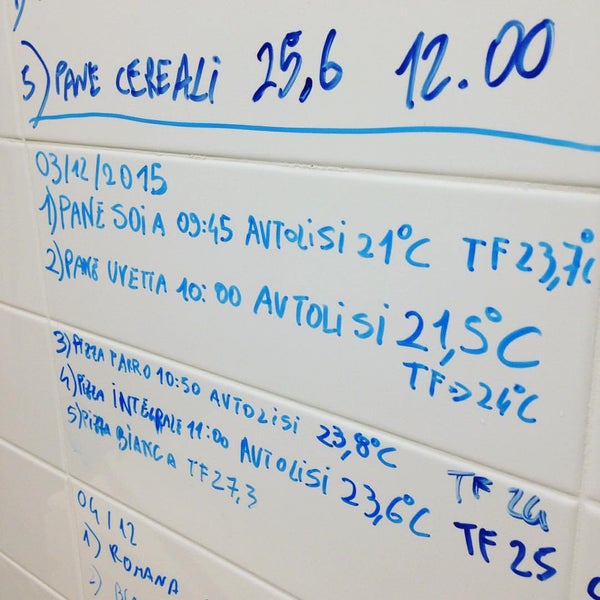 5) PANE CEREALI 25,6 12.00
03/12/2015
1) PANE SOIA 09:45 AUTOLISI 21°C TF 23,7°C
2) PANE UVETTA 10:00 AUTOLISI 21,5°C
TF => 24°C
3) PIZZA FARRO 10:50 AUTOLISI 23,8°C TF 24
4) PIZZA INTEGRALE 11:00 AUTOLISI 23,6°C TF 25
5) PIZZA BIANCA TF 27,3
04/12
1) ROMANA
2)